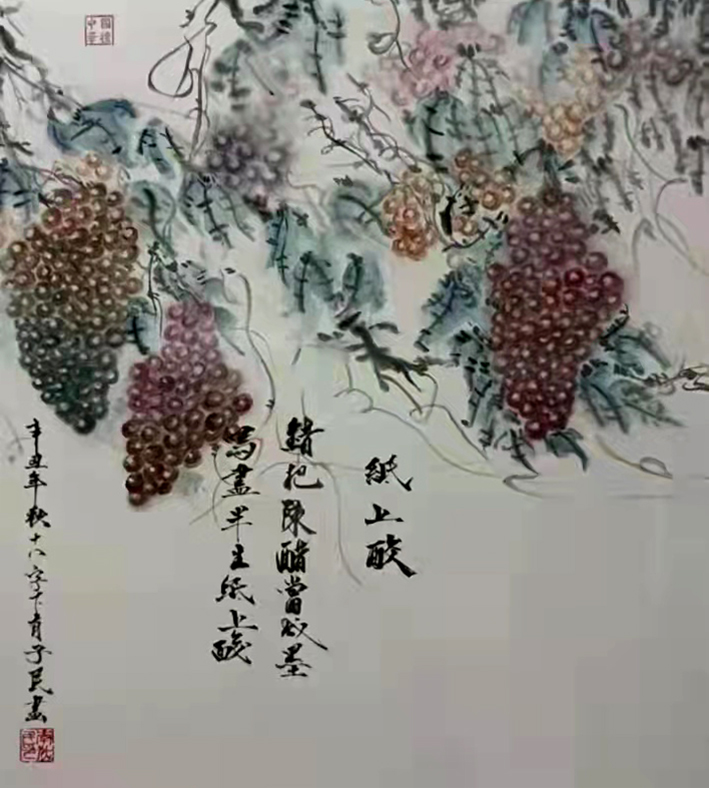 紙上酸
錯把陳醋當成墨
寫盡半生紙上酸
辛丑年秋十八字下有子民畫